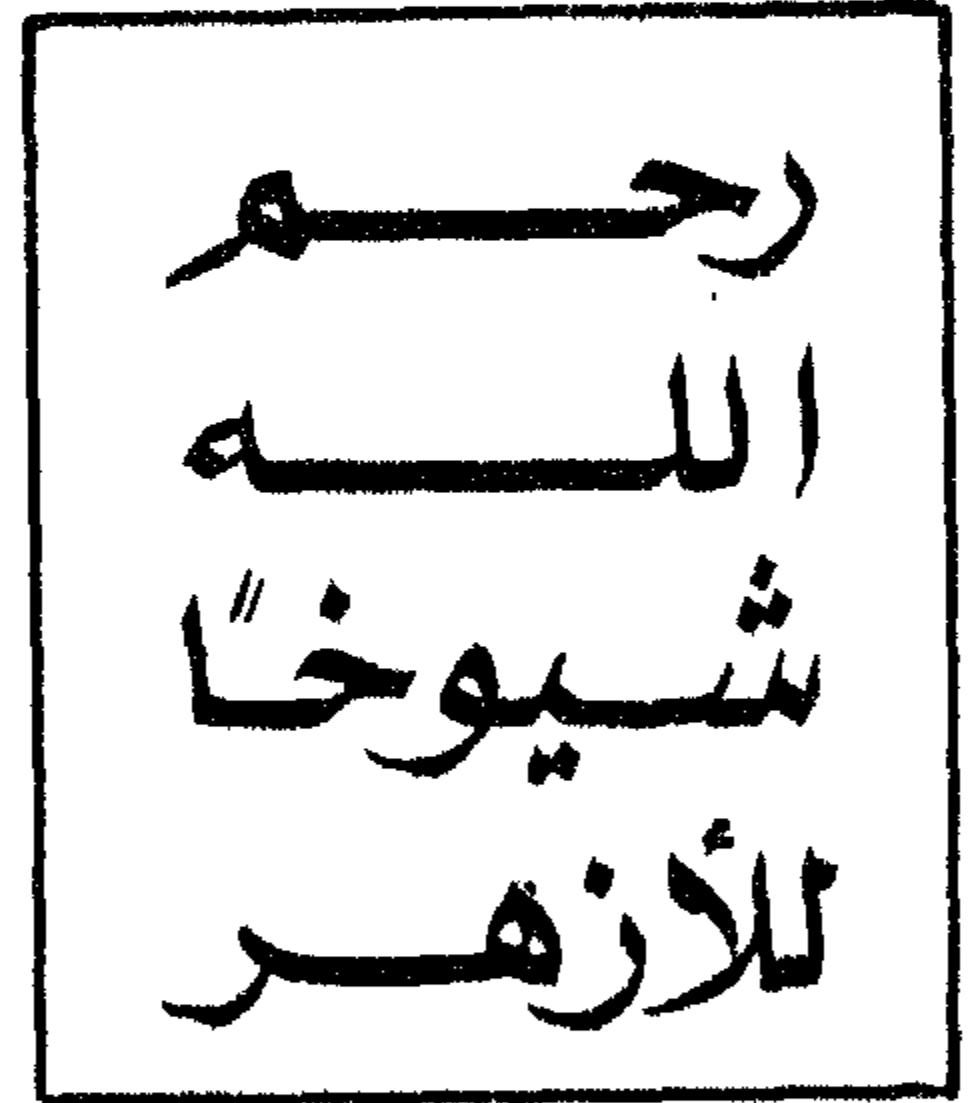 رحم
الله
شيوخًا
للأزهر